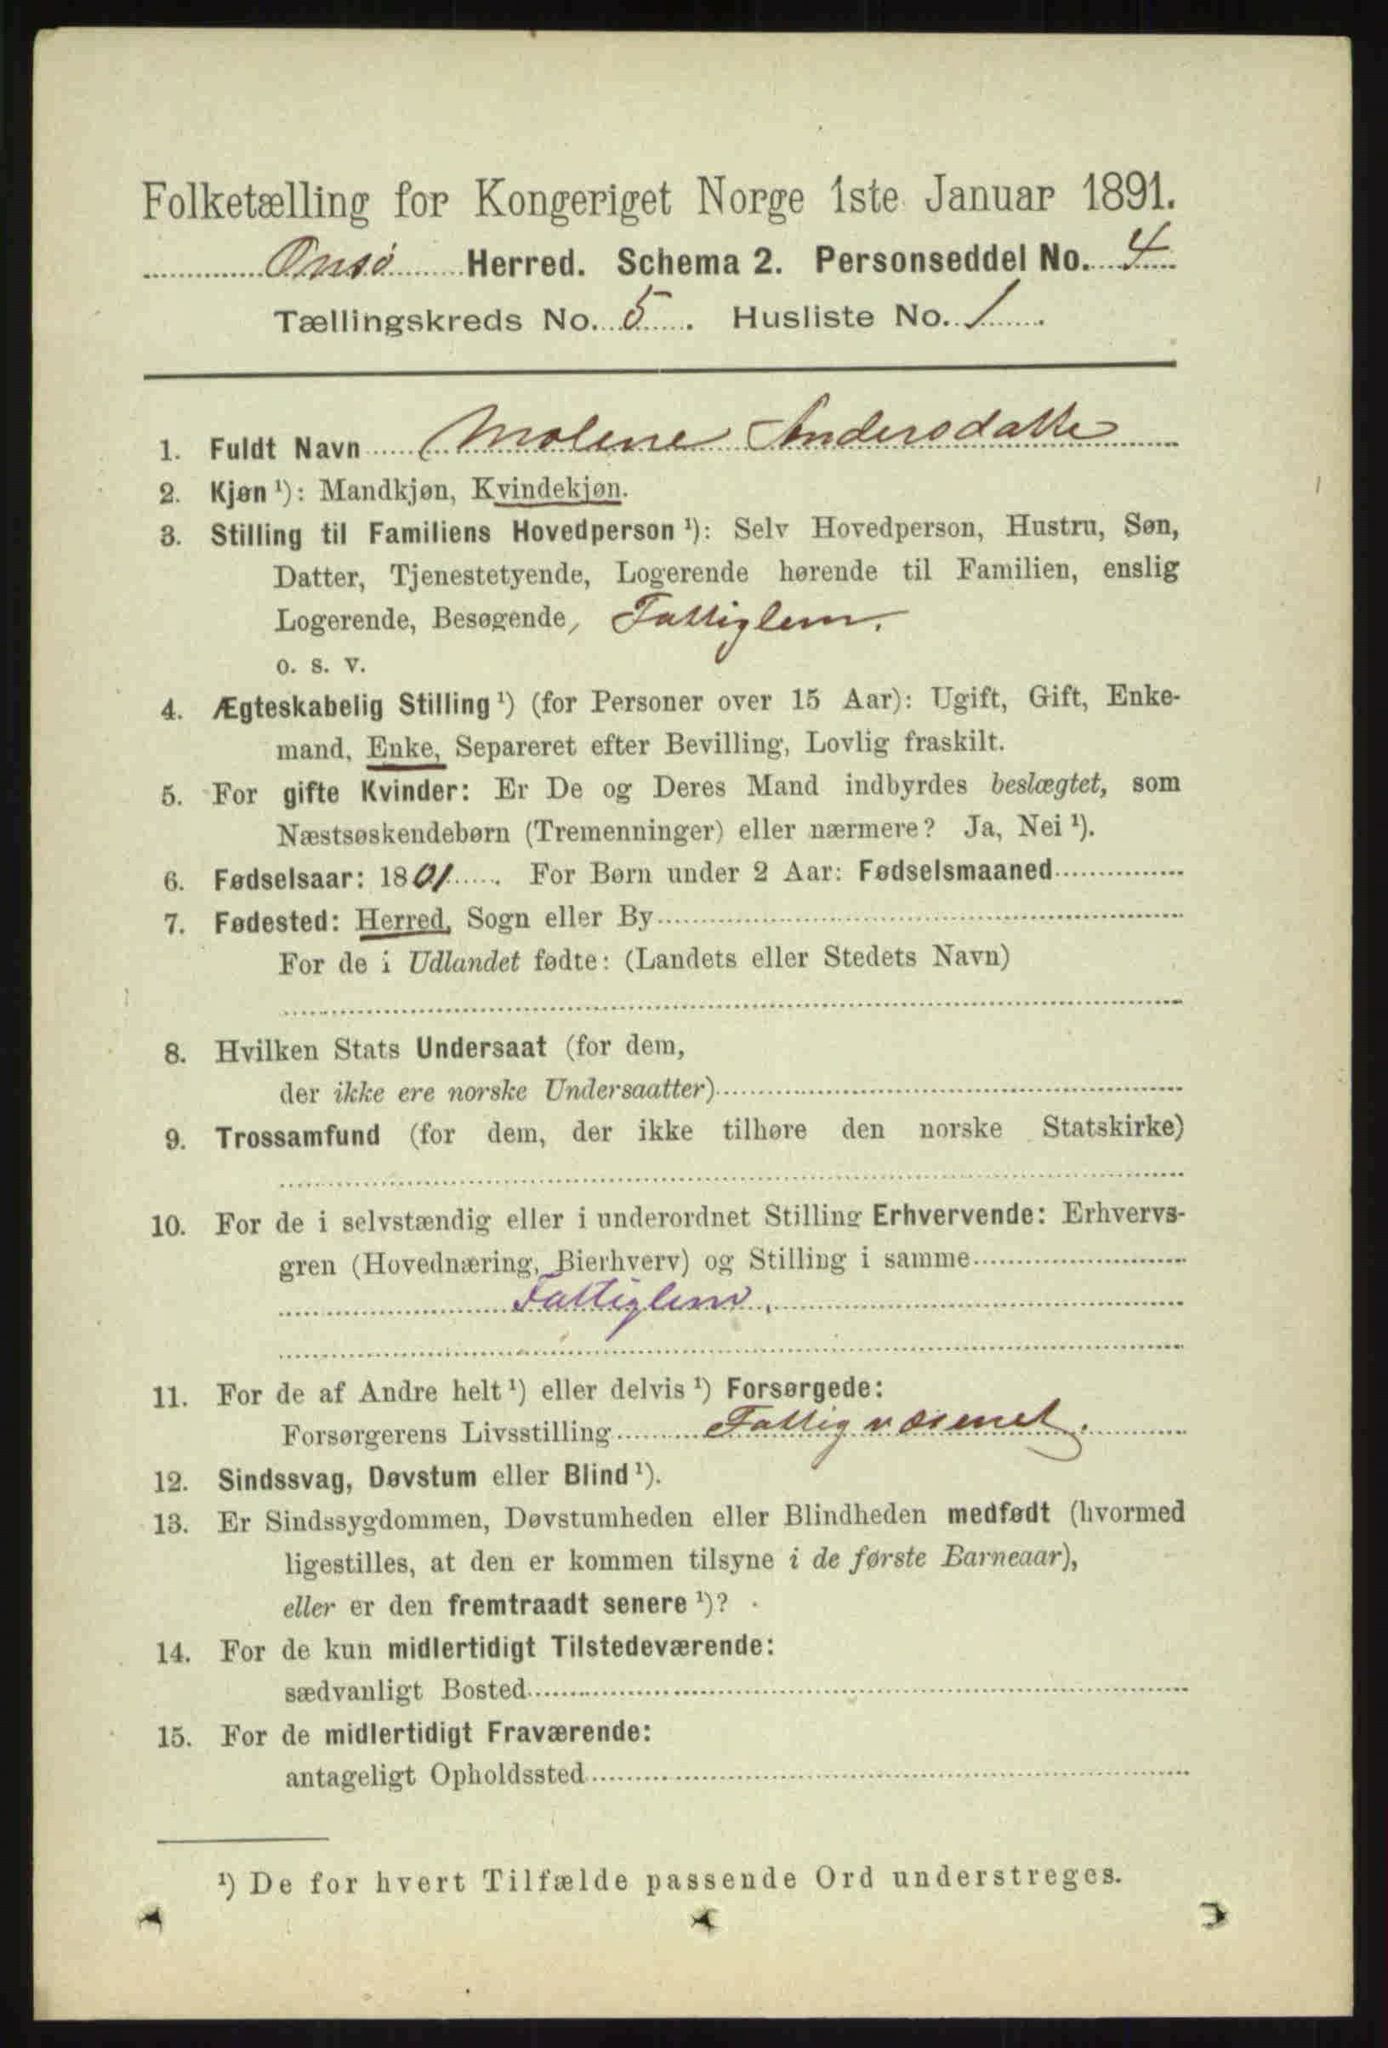 Folketælling for Kongeriget Norge 1ste Januar 1891.
Onsø Herred. Schema 2. Personseddel No. 4
Tællingskreds No. 5. Husliste No. 1.
1. Fuldt Navn Molene Andersdatte
2. Kjøn ¹): Mandkjøn, Kvindekjøn.
3. Stilling til Familiens Hovedperson ¹): Selv Hovedperson, Hustru, Søn,
Datter, Tjenestetyende, Logerende hørende til Familien, enslig
Logerende, Besøgende, Fattiglem.
o. s. v.
4. Ægteskabelig Stilling ¹) (for Personer over 15 Aar): Ugift, Gift, Enke-
mand, Enke, Separeret efter Bevilling, Lovlig fraskilt.
5. For gifte Kvinder: Er De og Deres Mand indbyrdes beslægtet, som
Næstsøskendebørn (Tremenninger) eller nærmere? Ja, Nei ¹).
6. Fødselsaar: 1801. For Børn under 2 Aar: Fødselsmaaned
7. Fødested: Herred, Sogn eller By
For de i Udlandet fødte: (Landets eller Stedets Navn)
8. Hvilken Stats Undersaat (for dem,
der ikke ere norske Undersaatter)
9. Trossamfund (for dem, der ikke tilhøre den norske Statskirke)
10. For de i selvstændig eller i underordnet Stilling Erhvervende: Erhvervs-
gren (Hovednæring, Bierhverv) og Stilling i samme
Fattiglem.
11. For de af Andre helt ¹) eller delvis ¹) Forsørgede:
Forsørgerens Livsstilling Fattigvæsenet.
12. Sindssvag, Døvstum eller Blind ¹).
13. Er Sindssygdommen, Døvstumheden eller Blindheden medfødt (hvormed
ligestilles, at den er kommen tilsyne i de første Barneaar),
eller er den fremtraadt senere ¹)?
14. For de kun midlertidigt Tilstedeværende:
sædvanligt Bosted
15. For de midlertidigt Fraværende:
antageligt Opholdssted
¹) De for hvert Tilfælde passende Ord understreges.